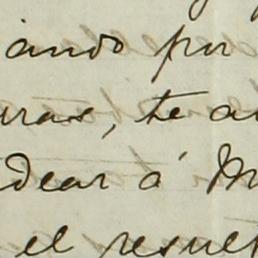 iando por
uras, te a
dear á M
el resul